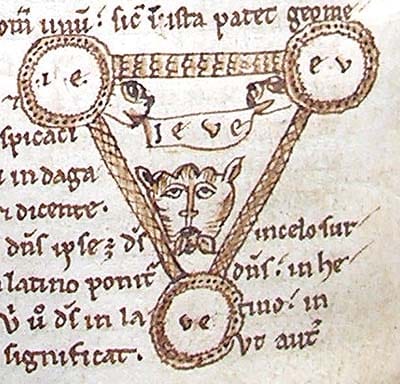 unu: sic ista patet geome
.ı. e.
e v
ı e v e
spicaci
in daga
dicente.
dns ipse ds incelo sur
latino ponit dns: in he
ds in la ve tino: in
significat. ut aut